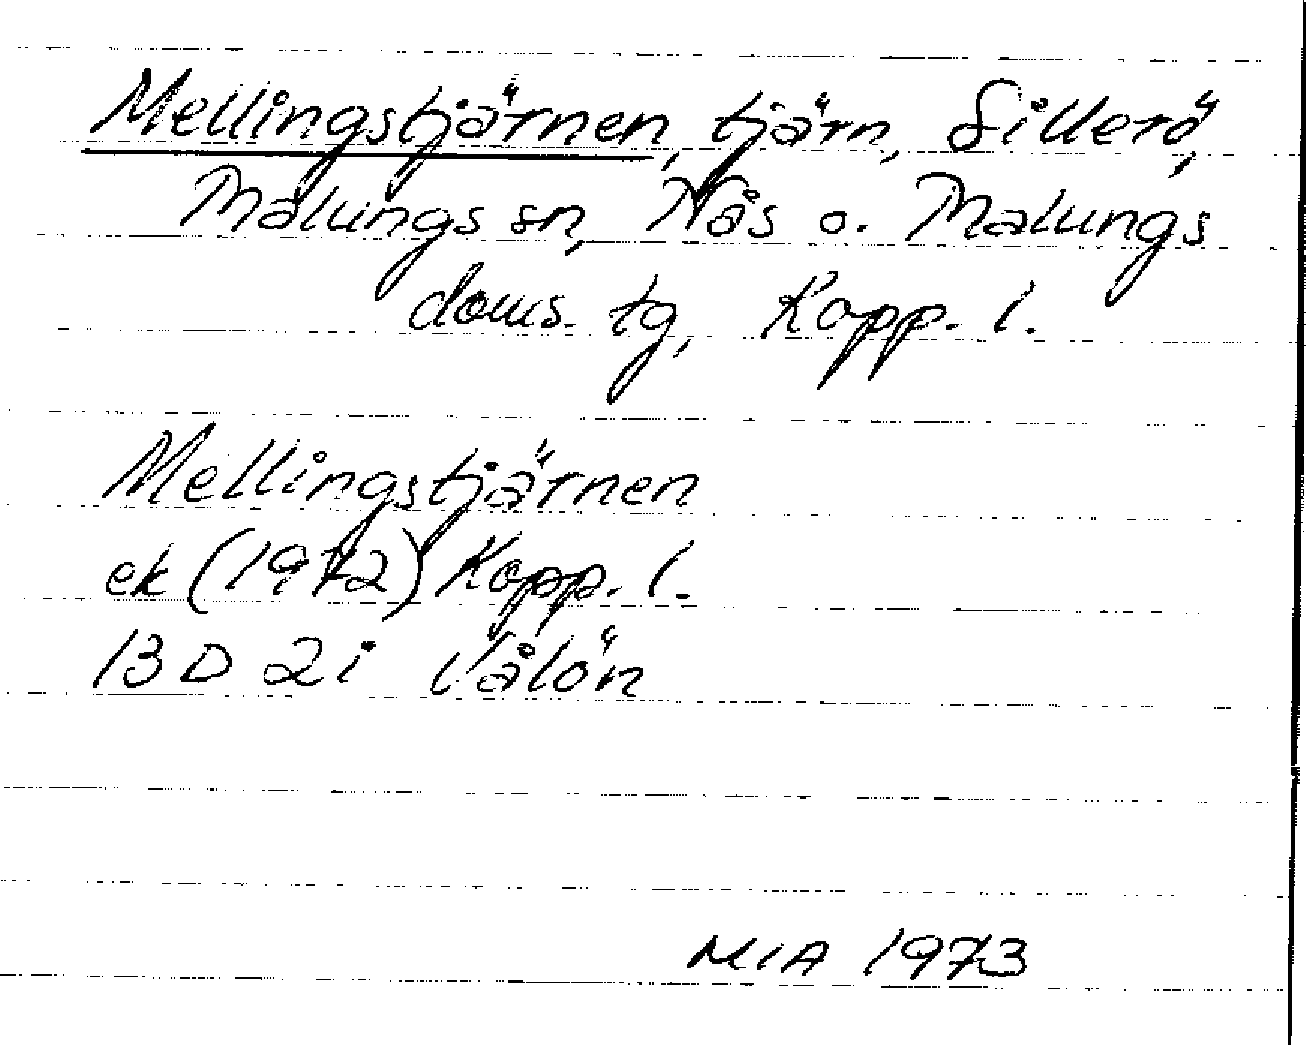 Mellingstjärnen, tjärn, Sillerö,
Malungs sn, Nås o. Malungs
doms. tg, Kopp. l.
Mellingstjärnen
ek (1972) Kopp. l.
13 D 2i Vålön
MIA 1973